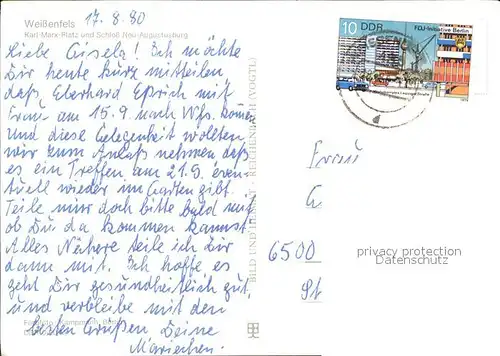 Weißenfels
17.8.80
Karl-Marx-Platz und Schloß Neu-Augustusburg
Liebe Gisela! Ich möchte
Dir heute kurz mitteilen,
daß Eberhard mit
Frau am 15.9 nach Wfs. kommen
und diese Gelegenheit wollten
wir zum Anlaß nehmen daß
es ein Treffen am 21.9. even-
tuell wieder im Garten gibt.
Teile mir doch bitte bald mit
ob Du da kommen kannst.
Alles Nähere teile ich Dir
dann mit. Ich hoffe es
geht Dir gesundheitlich gut,
und verbleibe mit den
besten Grüßen Deine
Mariechen.
BILD UND HEIMAT REICHENBACH (VOGTL)
10 DDR
FDJ-Initiative Berlin
Frau
G
6500
St
privacy protection
Datenschutz